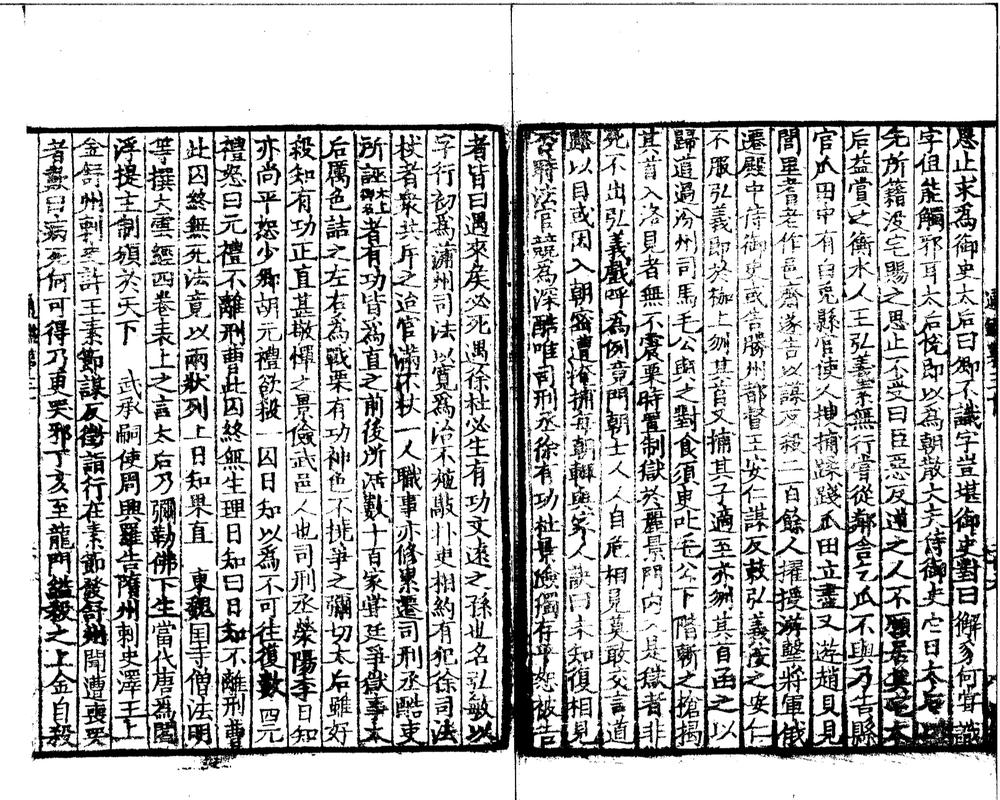 思止求爲御史太后曰卿不識字豈堪御史對曰解豸何甞識
字但能觸邪耳太后悅即以爲朝散大夫侍御史它日太后以
先所籍没宅賜之思止不受曰臣惡反逆之人不願居其宅太
后益賞之衡水人王弘義素無行甞從鄰舍乞瓜不與乃告縣
官瓜田中有白兎縣官使人搜捕蹂踐瓜田立盡又遊趙貝見
閭里耆老作邑齋遂告以謀反殺二百餘人擢授游擊將軍俄
遷殿中侍御史或告勝州都督王安仁謀反敕弘義按之安仁
不服弘義即於枷上刎其首又捕其子適至亦刎其首函之以
歸道過汾州司馬毛公與之對食須臾叱毛公下階斬之槍揭
其首入洛見者無不震栗時置制獄於麗景門内入是獄者非
死不出弘義戲呼爲例竟門朝士人人自危相見莫敢交言道
路以目或因入朝密遭掩捕每朝輙與家人訣曰未知復相見
否時法官競爲深酷唯司刑丞徐有功杜景儉獨存平恕被告
者皆曰遇來侯必死遇徐杜必生有功文遠之孫也名弘敏以
字行初爲蒲州司法以寛爲治不施敲朴吏相約有犯徐司法
杖者衆共斥之迨官滿不杖一人職事亦修累遷司刑丞酷吏
所誣者有功皆爲直之前後所活數十百家甞廷爭獄事太
后厲色詰之左右爲戰栗有功神色不撓爭之彌切太后雖好
殺知有功正直甚敬憚之景儉武邑人也司刑丞滎陽李日知
亦尚平恕少卿胡元禮欲殺一囚日知以爲不可往復數四元
禮怒曰元禮不離刑曹此囚終無生理日知曰日知不離刑曹
此囚終無死法竟以兩狀列上日知果直　東魏国寺僧法明
等撰大雲經四卷表上之言太后乃彌勒佛下生當代唐爲閻
浮提主制頒於天下　武承嗣使周興羅告隋州刺史澤王上
金舒州刺史許王素節謀反徵詣行在素節發舒州聞遭喪哭
者歎曰病死何可得乃更哭邪丁亥至龍門縊殺之上金自殺